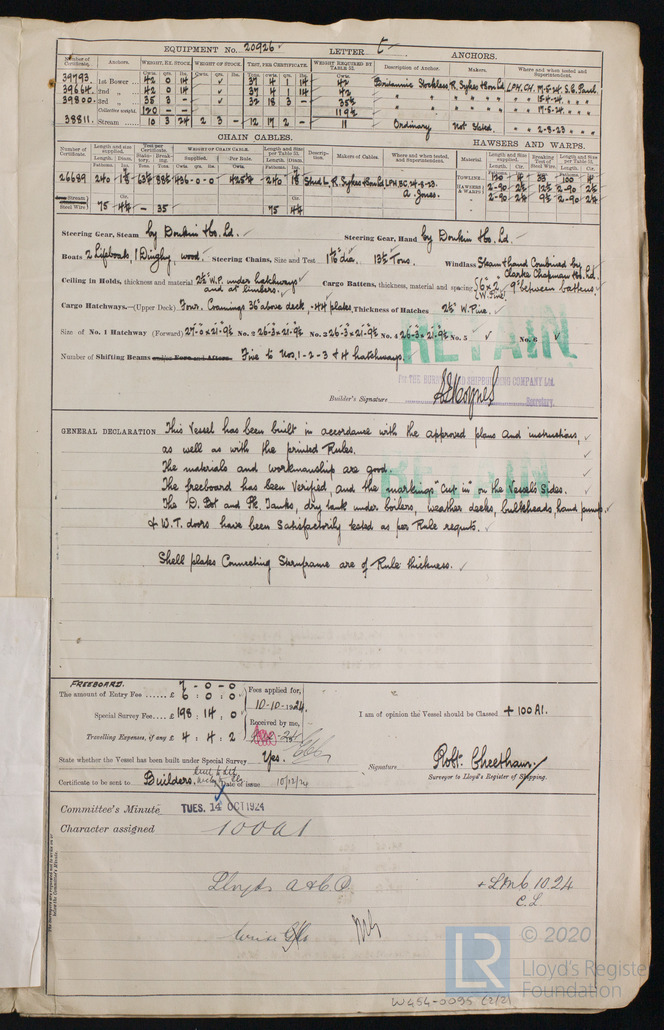 EQUIPMENT No. 20926 LETTER t ANCHORS.
Number of Certificate. Anchors. WEIGHT, EX. STOCK. WEIGHT OF STOCK. TEST, PER CERTIFICATE. WEIGHT REQUIRED BY TABLE 22. Description of Anchor. Makers. Where and when tested and Superintendent.
39793 1st Bower 42 0 14 ✓ 37 4 1 14 42 Britannic Stockless R. Sykes & Son Ld LPH. CH. 17-5-24. S.E. Paul.
39664 2nd " 42 0 14 ✓ 37 4 1 14 42
39800 3rd " 35 3 - ✓ 32 18 3 - 35½
Collective weight. 120 - - 119½
38811 Stream 10 3 24 2 3 - 12 17 2 - 11 Ordinary Not Stated 2-8-23
CHAIN CABLES. HAWSERS AND WARPS.
Number of Certificate. Length and size supplied. Test per Certificate. WEIGHT OF CHAIN CABLE. Length and Size per Table 22. Description. Makers of Cables. Where and when tested, and Superintendent. Material Length and Size supplied. Breaking Test of Steel Wire. Length and Size per Table 22.
26689 240 436-0-0 240 Stud L. R. Sykes & Son Ld LPH. BC. 24-8-23. A. Jones. TOWLINE 120 4 33 100 4
HAWSERS & WARPS 2-90 2-90
2-90 2-90
Stream Steel Wire 75 - 35 75
Steering Gear, Steam by Donkin &Co. Ld. Steering Gear, Hand by Donkin &Co. Ld.
Boats 2 Lifeboats, 1 Dinghy. wood. Steering Chains, Size and Test dia. 13½ Tons. Windlass Steam & hand Combined by Clarke Chapman &Co. Ld.
Ceiling in Holds, thickness and material 2½" W.P. under hatchways and at limbers. Cargo Battens, thickness, material and spacing 6"x2" 9" between battens (W. Pine)
Cargo Hatchways.—(Upper Deck) Four. Coamings 36" above deck .44 plates. Thickness of Hatches 2½" W. Pine.
Size of No. 1 Hatchway (Forward) 27-3x21-9½ No. 2 26-3x21-9½ No. 3 26-3x21-9½ No. 4 26-3x21-9½ No. 5 ✓ No. 6 ✓
Number of Shifting Beams and/or Fore and Afters Five to Nos. 1-2-3 & 4 hatchways.
RETAIN
For THE BURNTISLAND SHIPBUILDING COMPANY LTD.
Builder's Signature Secretary.
GENERAL DECLARATION This Vessel has been built in accordance with the approved plans and instructions,
as well as with the printed Rules.
The materials and workmanship are good.
RETAIN
The freeboard has been Verified, and the markings "Cut in" on the Vessel's Sides.
The D. Bot and Pk. Tanks, dry tank under boilers, weather decks, bulkheads, hand pumps
& W.T. doors have been Satisfactorily tested as per Rule reqmts.
Shell plates Connecting Sternframe are of Rule thickness.
FREEBOARD. 7-0-0
The amount of Entry Fee £ 6 : 0 : 0 Fees applied for, 10-10-1924.
Special Survey Fee £ 198 : 14 : 0 Received by me,
Travelling Expenses, if any £ 4 : 4 : 2
I am of opinion the Vessel should be Classed + 100 A1.
State whether the Vessel has been built under Special Survey Yes.
Signature Robt. Cheetham
Surveyor to Lloyd's Register of Shipping.
Certificate to be sent to Builders. Date of issue 10/12/24
Committee's Minute TUES. 14 OCT 1924
Character assigned 100A1
Lloyds A & C P.
+ LMC 10.24
C.L
© 2020
LR Lloyd's Register Foundation
W454-0095 (2/2)